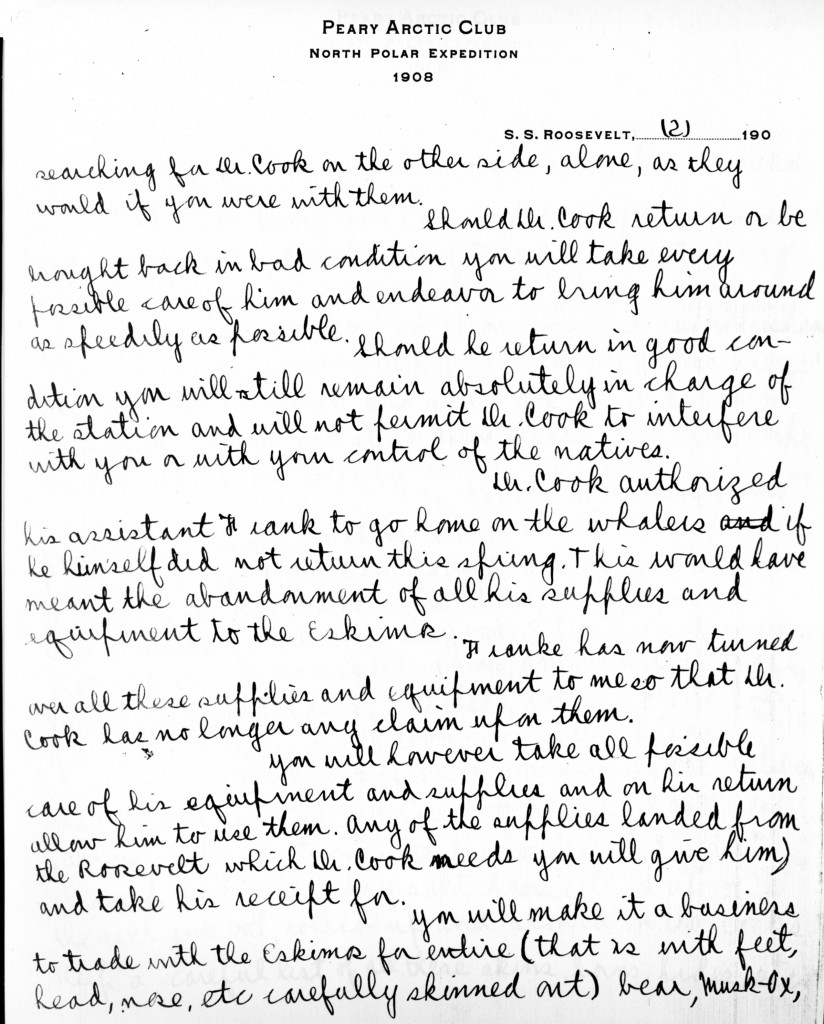 PEARY ARCTIC CLUB
NORTH POLAR EXPEDITION
1908
S. S. ROOSEVELT, (2) 190
searching for Dr. Cook on the other side, alone, as they
would if you were with them.
Should Dr. Cook return or be
brought back in bad condition you will take every
possible care of him and endeavor to bring him around
as speedily as possible. Should he return in good con-
dition you will still remain absolutely in charge of
the station and will not permit Dr. Cook to interfere
with you or with your control of the natives.
Dr. Cook authorized
his assistant Frank to go home on the whalers and if
he himself did not return this spring. This would have
meant the abandonment of all his supplies and
equipment to the Eskimos.
Franke has now turned
over all these supplies and equipment to me so that Dr.
Cook has no longer any claim upon them.
You will however take all possible
care of his equipment and supplies and on his return
allow him to use them. Any of the supplies landed from
the Roosevelt which Dr. Cook needs you will give him)
and take his receipt for.
You will make it a business
to trade with the Eskimos for entire (that is with feet,
head, nose, etc carefully skinned out) bear, musk-ox,